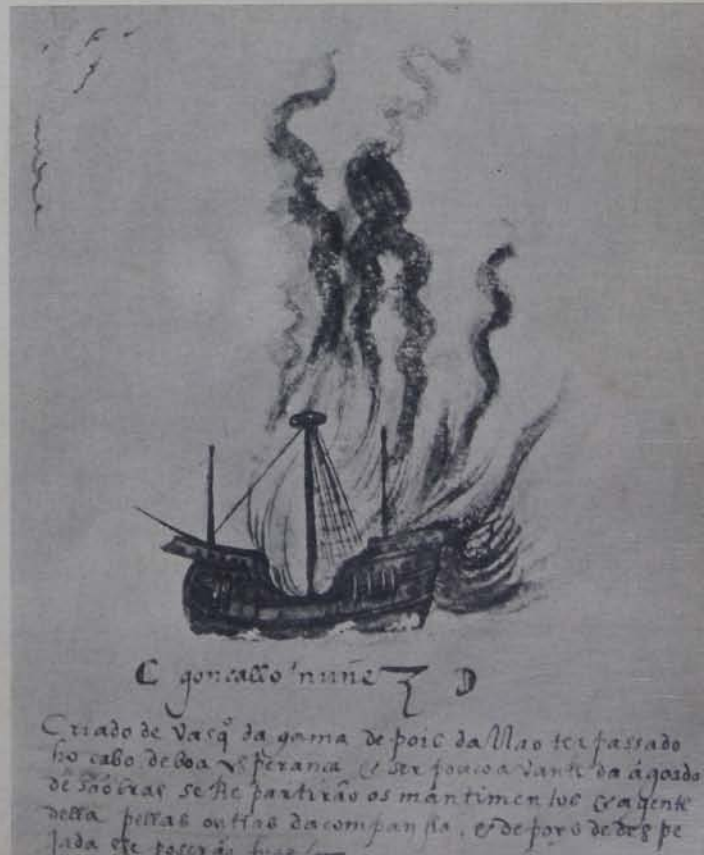 C goncallo nuñez D
Criado de Vasqº da gama de pois da Nao ter passado
ho cabo de boa esperanca & ser pouco a vante da ágoada
de são bras se lhe partirão os mantimentos & a gente
della pellas outras da companhia, & de pois de des pe
jada lhe poserão fogo